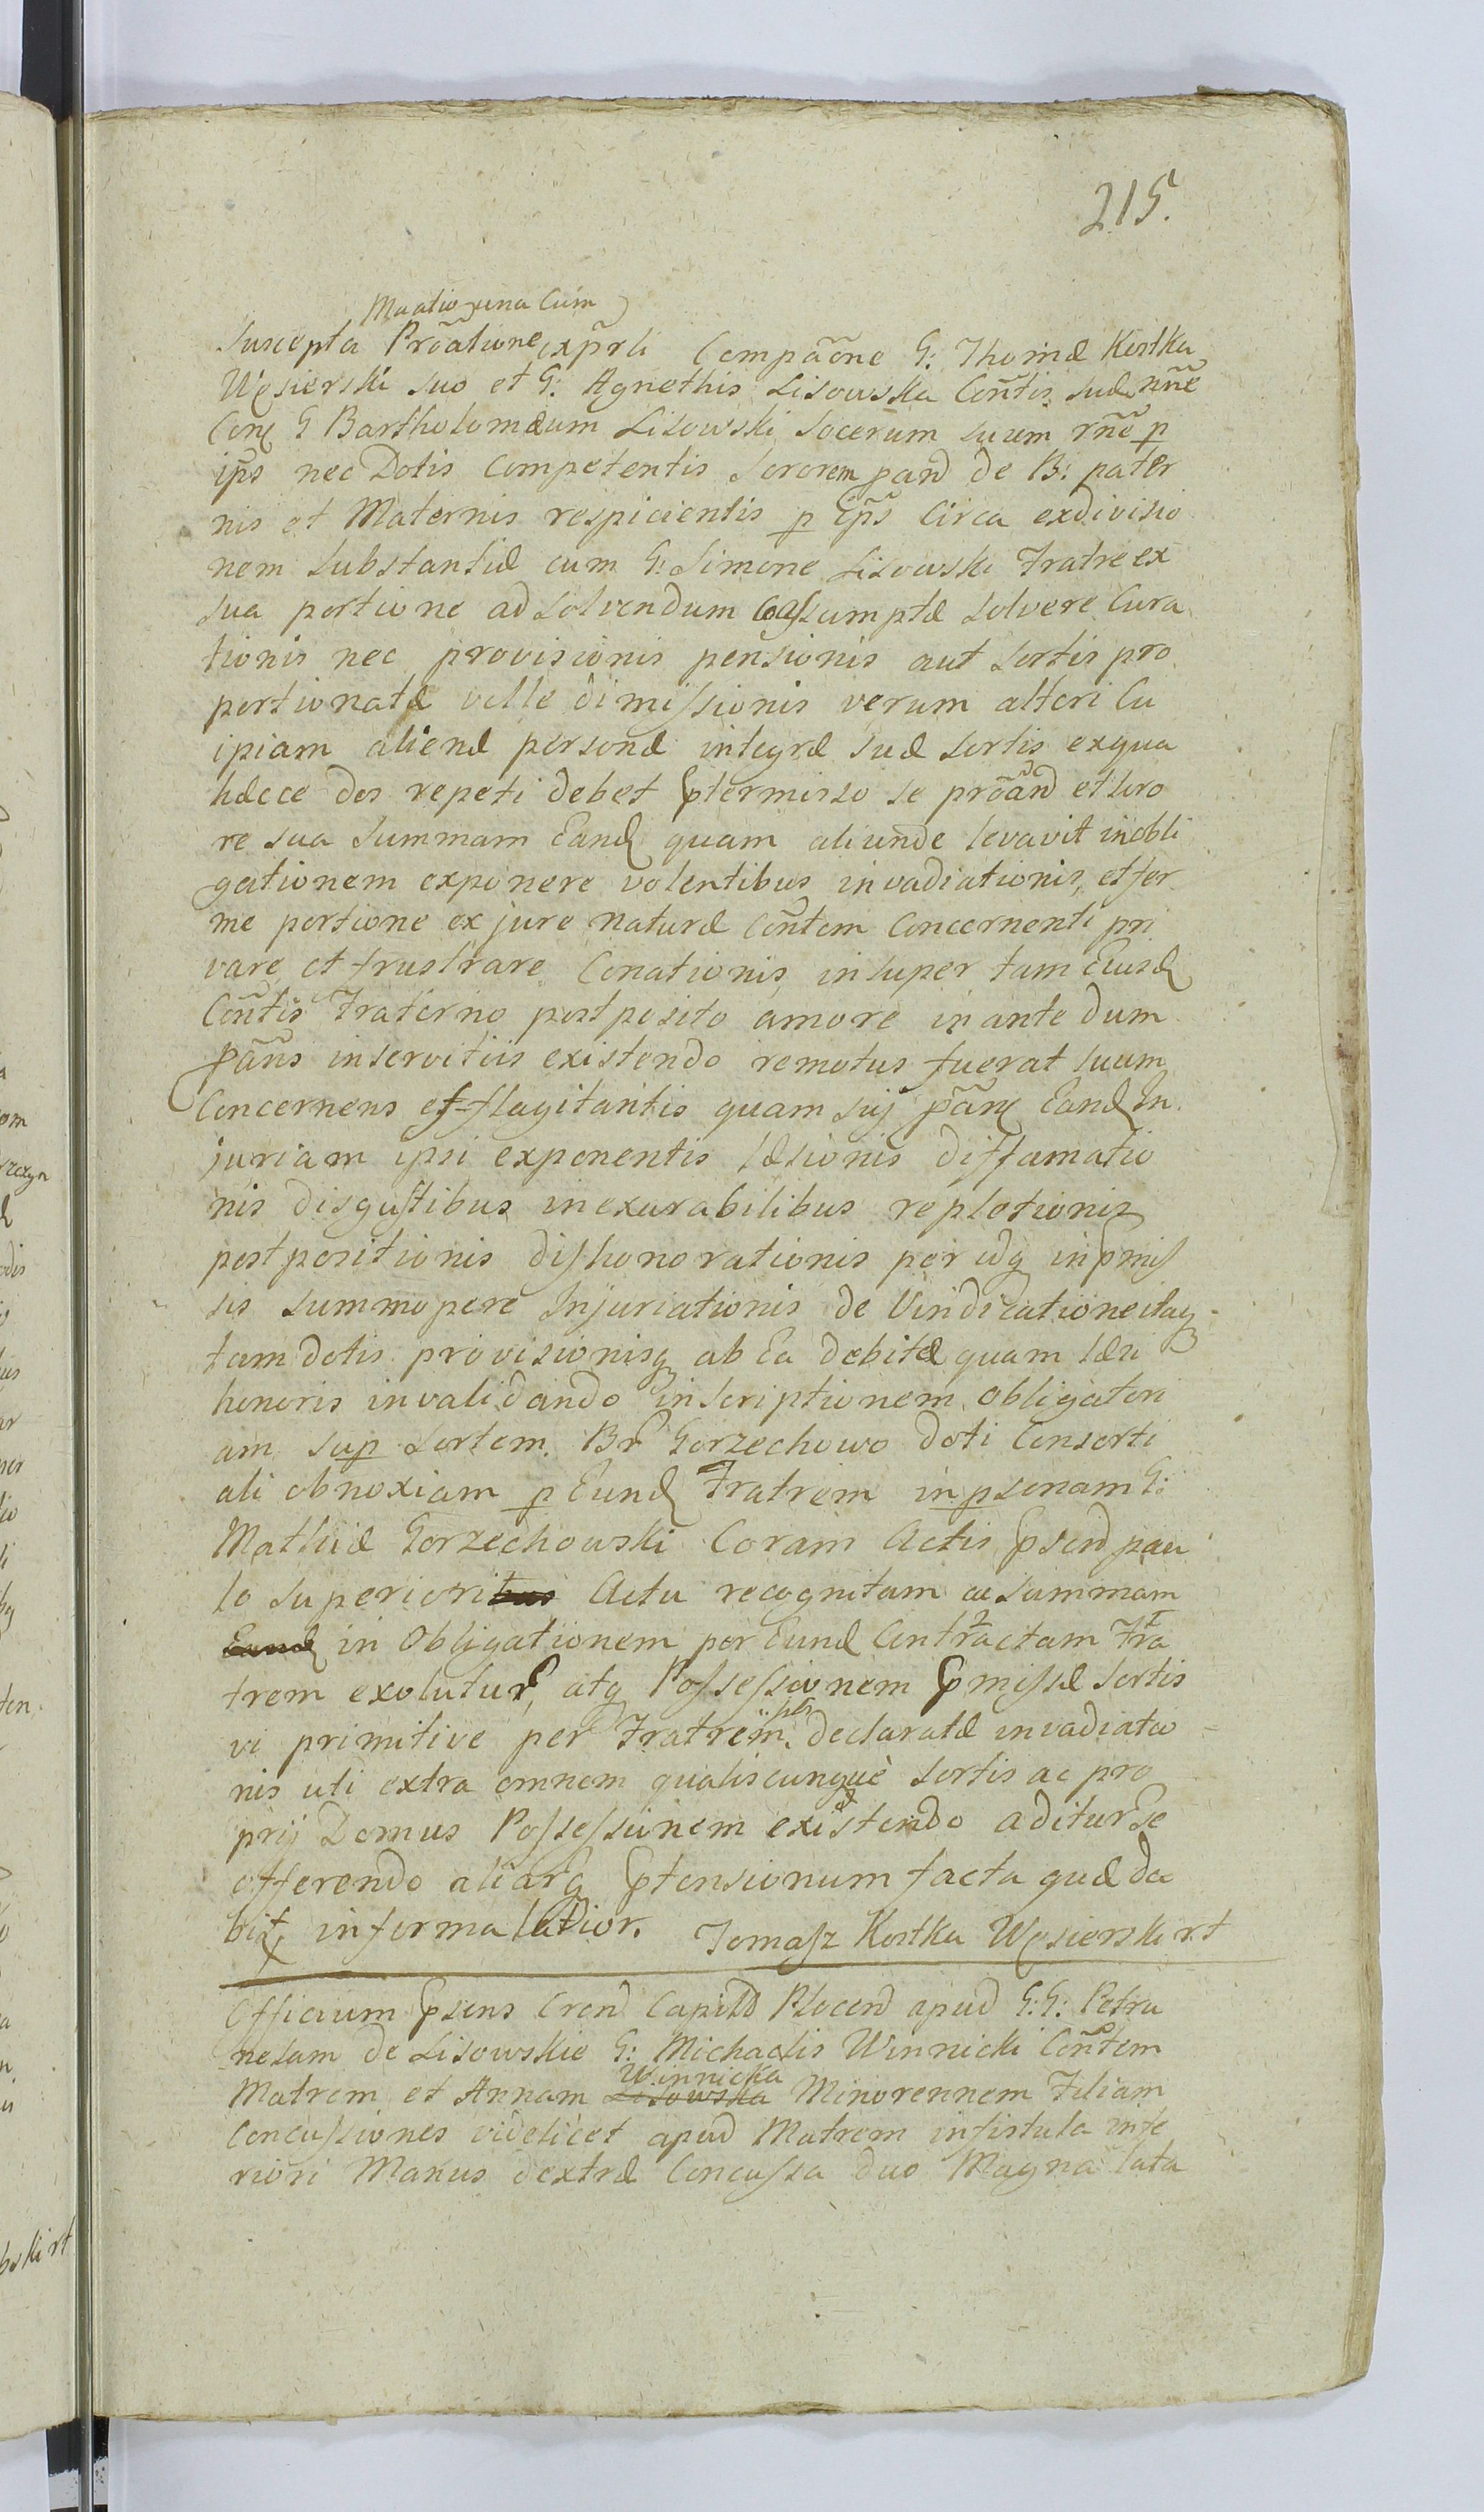 215.
Mãatio una Cum
Suscepta Prõatione exp̃rli Compãõne G: Thomæ Kostka
Węsierski suo et G: Agnethis Lisowska Cõntis suæ nñe
Con G Bartholomæum Lisowski Socerum suum rñe p
ip̃s nec Dotis Competentis Sororem pand de B: pater
nis et Maternis respicientis p ip̃s Circa exdivisio
nem Substantiæ cum G: Simone Lisowski Fratre ex
sua portione ad solvendum assumptæ solvere Cura
tionis nec provisionis pensionis aut Sortis pro
portionatæ velle dimissionis verum alteri Cu
ipiam alienæ personæ integræ suæ Sortis exqua
hæcce dos repeti debet ptermisso se prõand et soro
re sua Summam Eand quam aliunde levavit inobli
gationem exponere volentibus invadiationis, et fer
me portione ex jure naturæ Cõntem Concernenti pri
vare et frustrare Conationis, insuper tam Eiusd
Cõntis Fraterno postposito amore in ante dum
pãns inservitiis existendo remotus fuerat suum
Concernens efflagitantis quam sij pãn Eand In
juriam ipsi exponentis læsionis diffamatio
nis disgustibus inexarabilibus repletionis
postpositionis dishonorationis per idq in pmis
sis summopere Injuriationis de Vindicatione itaq
tam dotis provisionisq ab Ea debitæ quam læsi
honoris invalidando inscriptionem obligatori
am sup Sortem Br Gorzechowo doti Consorti
ali obnoxiam p Eund Fratrem in psonam G:
Mathiæ Gorzechowski Coram Actis psend pau
lo superioribus Actu recognitam ac Summam
Eand in Obligationem per Eund Contractam Fra
trem exolutur, atq Possessionem pmissæ Sortis
vi primitive per Fratrem declaratæ invadiatio
nis uti extra omnem qualiscunque Sortis ac pro
prij Domus Possessionem existendo aditur se
offerendo aliarq ptensionum facta quæ da
bit in forma latior. Tomasz Kostka Węsierski rt
Officium psens Crend Capitld Plocend apud G:G: Petru
nelam de Lisowskie G: Michaelis Winnicki Cõntem
Winnicka
Matrem et Annam Lisowska Minorennem Filiam
Concussiones videlicet apud Matrem infistula infe
riori Manus dextræ Concussa duo Magna lata